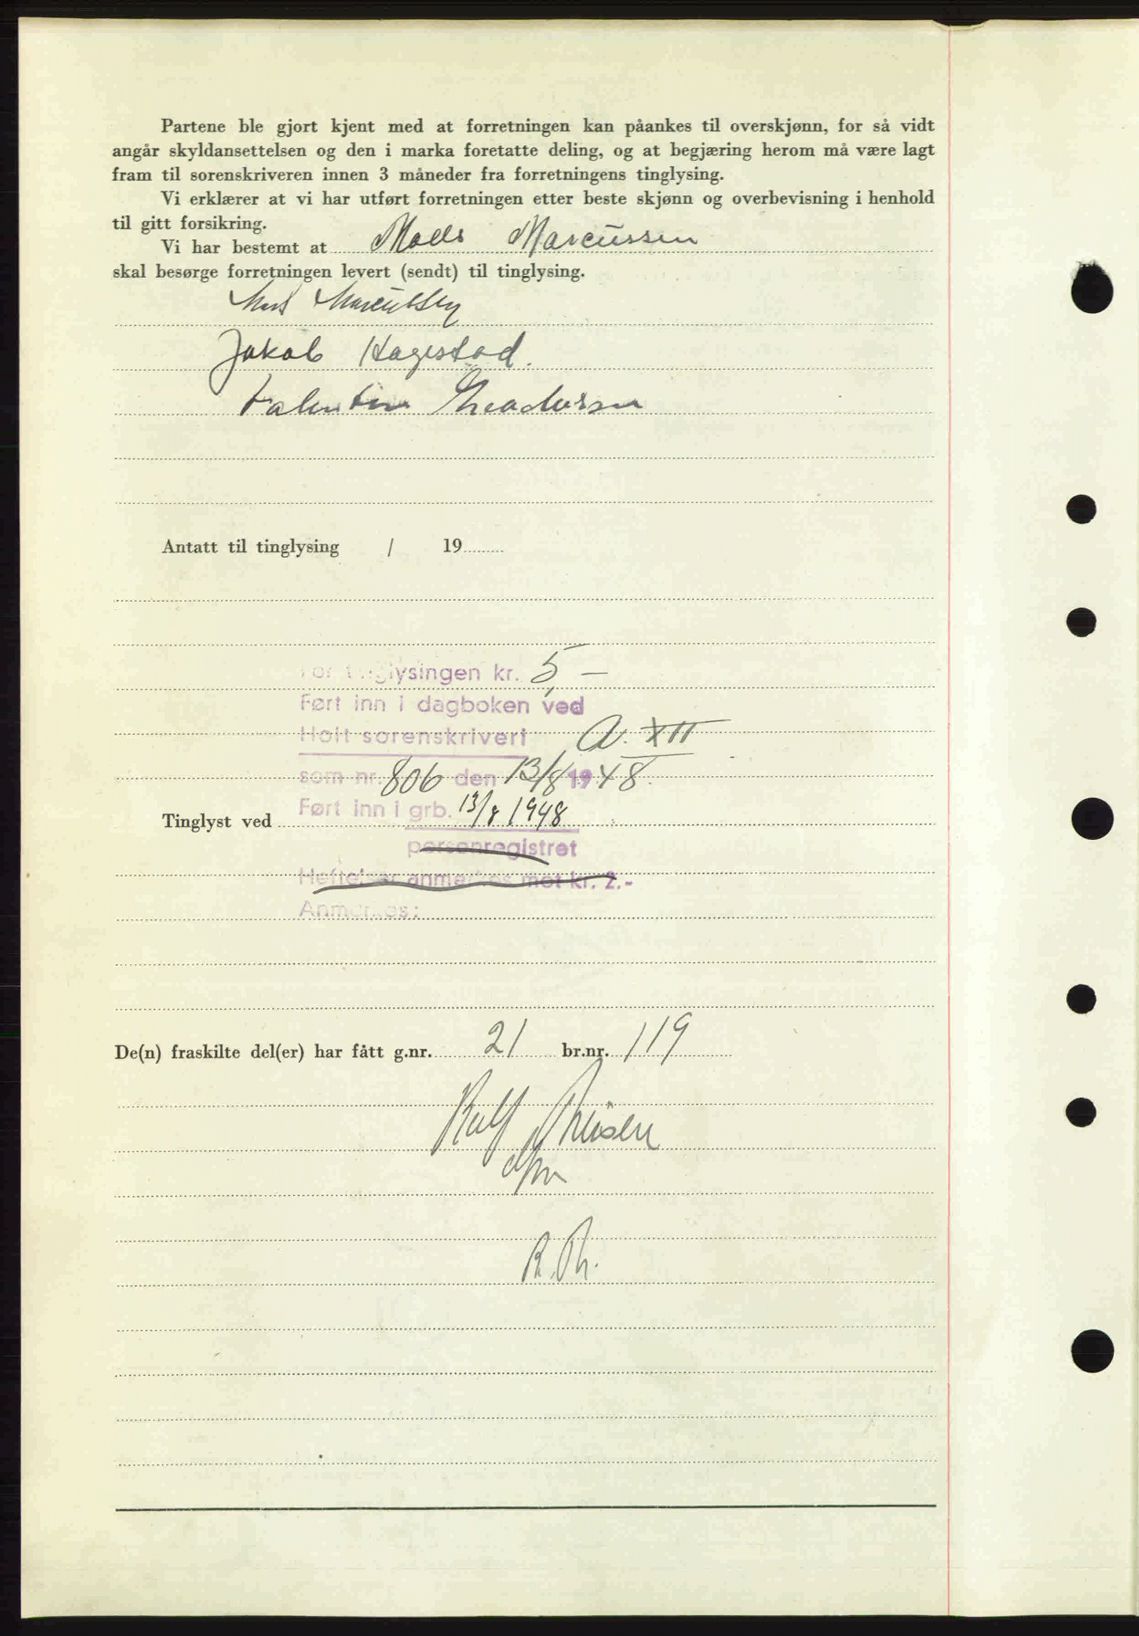 Partene ble gjort kjent med at forretningen kan påankes til overskjønn, for så vidt
angår skyldansettelsen og den i marka foretatte deling, og at begjæring herom må være lagt
fram til sorenskriveren innen 3 måneder fra forretningens tinglysing.
Vi erklærer at vi har utført forretningen etter beste skjønn og overbevisning i henhold
til gitt forsikring.
Vi har bestemt at Mads Marcussen
skal besørge forretningen levert (sendt) til tinglysing.
Mads Marcussen
Jakob Hagestad.
Valentin
Antatt til tinglysing / 19
For tinglysingen kr. 5,-
Ført inn i dagboken ved
Holt sorenskriveri A. XII
som nr. 806 den 13/8 1948.
Ført inn i grb. 13/8 1948
Tinglyst ved
personregistret
Heftelser anmerkes mot kr. 2.-
Anmerkes:
De(n) fraskilte del(er) har fått g.nr. 21 br.nr. 119
R. Th.